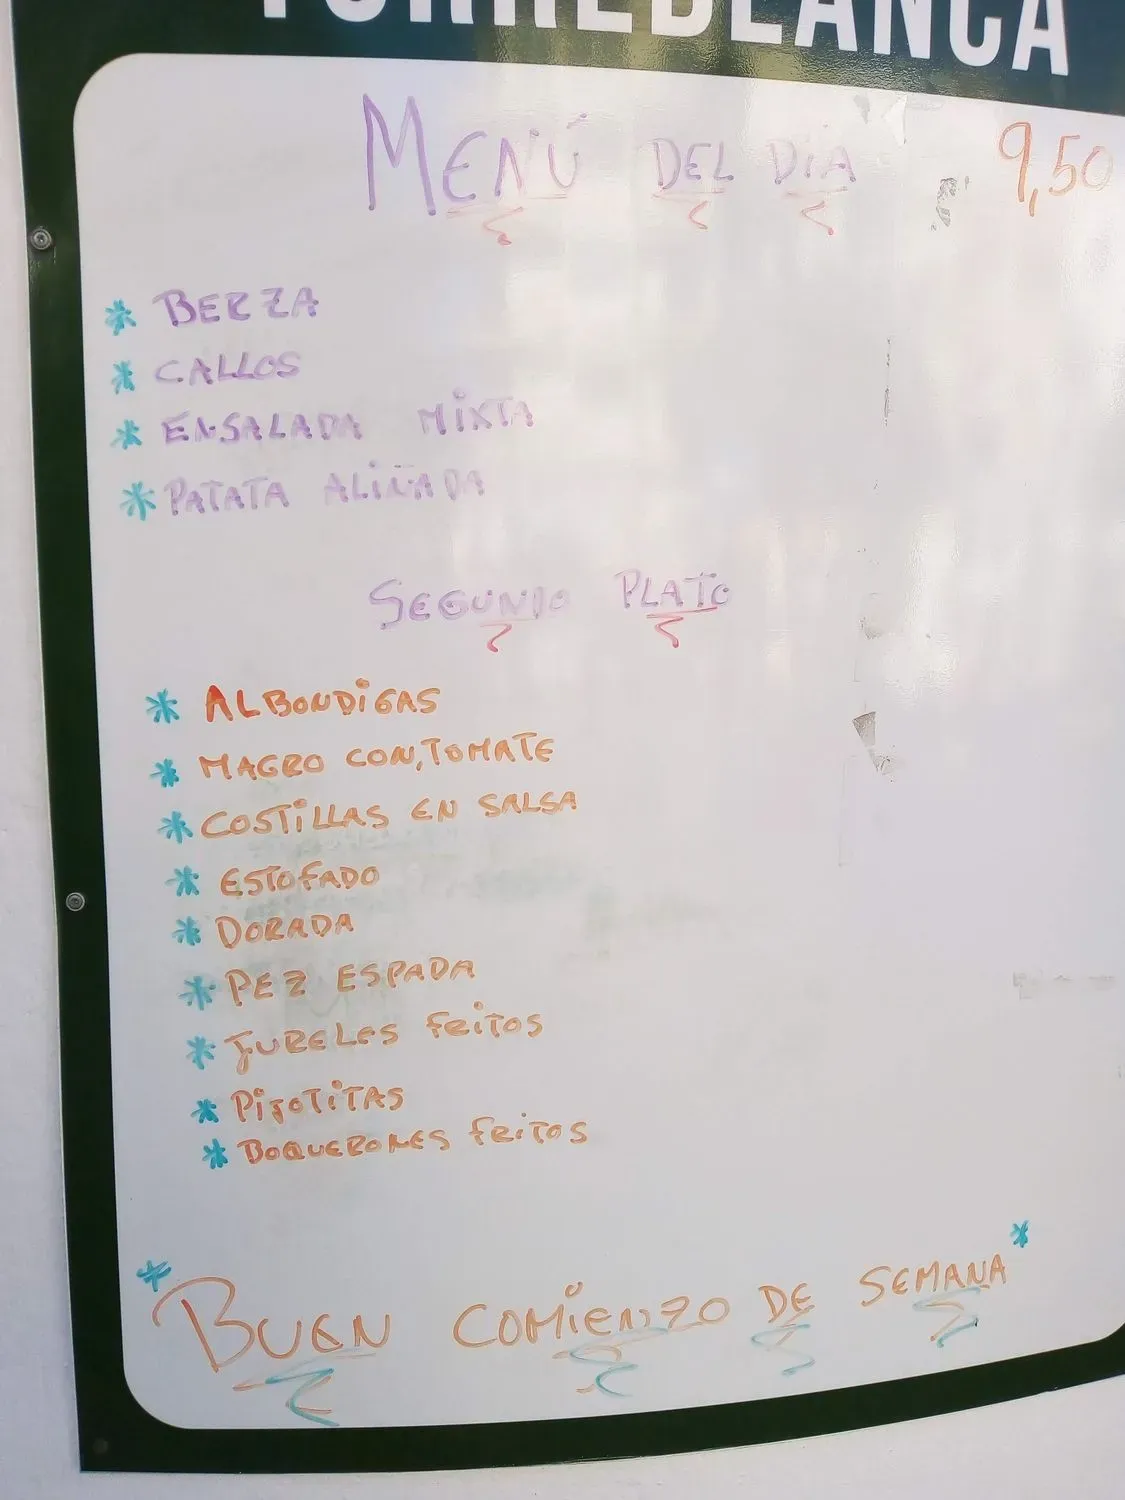 TORREBLANCA
MENÚ DEL DÍA 9,50
* BERZA
* CALLOS
* ENSALADA MIXTA
* PATATA ALIÑADA
SEGUNDO PLATO
* ALBONDIGAS
* MAGRO CON, TOMATE
* COSTILLAS EN SALSA
* ESTOFADO
* DORADA
* PEZ ESPADA
* JURELES FRITOS
* PIJOTITAS
* BOQUERONES FRITOS
* BUEN COMIENZO DE SEMANA *